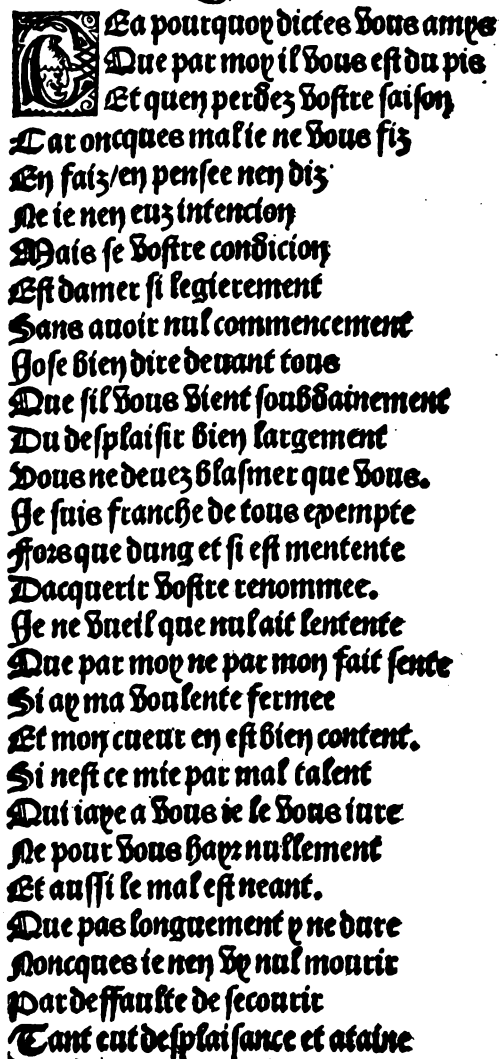 CEa pourquoy dictes vous amys
Que par moy il vous est du pis
Et quen perdez vostre saison
Car oncques mal ie ne vous fiz
En faiz/en pensee nen diz
Ne ie nen euz intencion
Mais se vostre condicion
Est damer si legierement
Sans auoir nul commencement
Jose bien dire deuant tous
Que sil vous vient soubdainement
Du desplaisir bien largement
Vous ne deuez blasmer que vous.
Je suis franche de tous exempte
Fors que dung et si est mentente
Dacquerir vostre renommee.
Je ne vueil que nul ait lentente
Que par moy ne par mon fait sente
Si ay ma voulente fermee
Et mon cueur en est bien content.
Si nest ce mie par mal talent
Qui iaye a vous ie le vous iure
Ne pour vous hayr nullement
Et aussi le mal est neant.
Que pas longuement y ne dure
Noncques ie nen vy nul mourir
Par deffaulte de secourir
Tant eut desplaisance et ataine